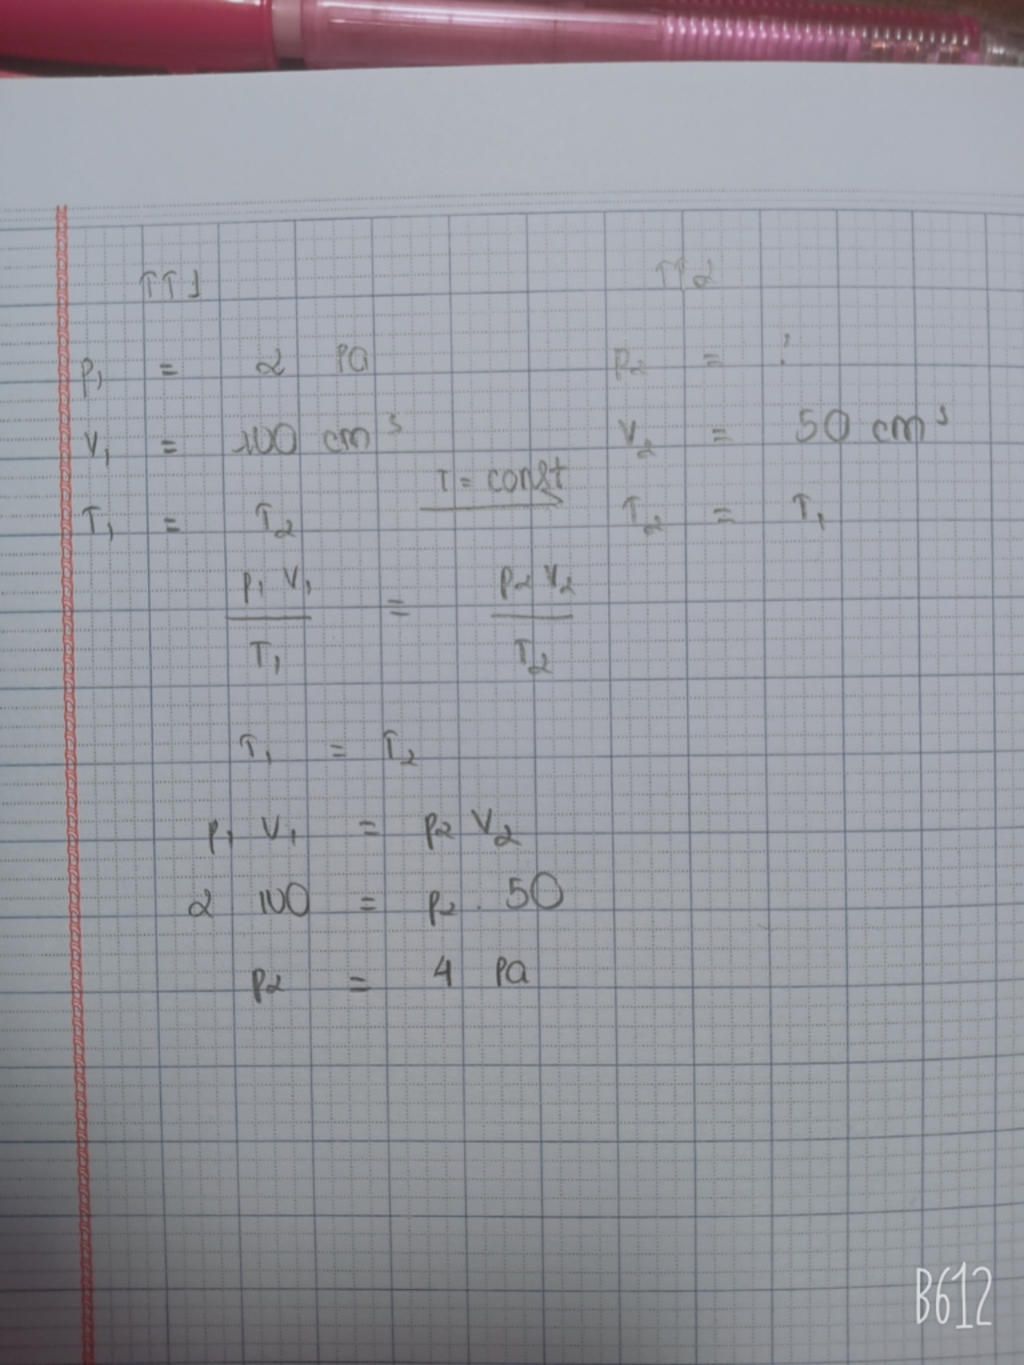 TT1 TT2
p₁ = 2 Pa p₂ = ?
V₁ = 100 cm³ V₂ = 50 cm³
T = const
T₁ = T₂ T₂ = T₁
p₁ V₁ / T₁ = p₂ V₂ / T₂
T₁ = T₂
p₁ V₁ = p₂ V₂
2 100 = p₂ . 50
p₂ = 4 Pa
B612